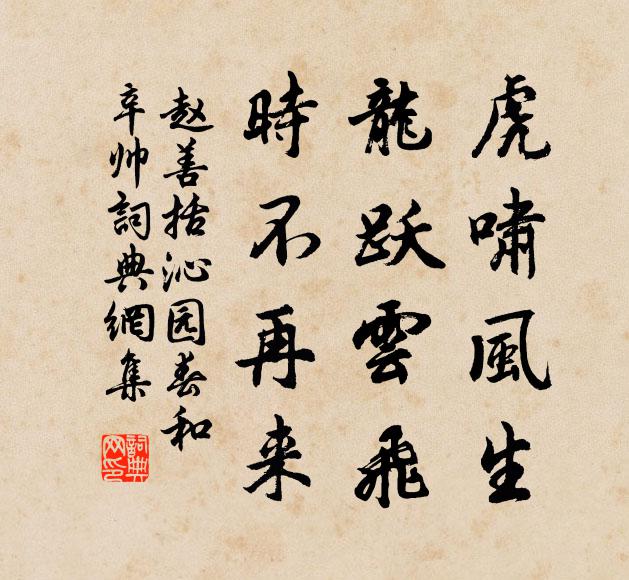 虎啸風生
龍跃雲飛
時不再来
赵善括沁园春和
辛帅詞典網集
詞典网印